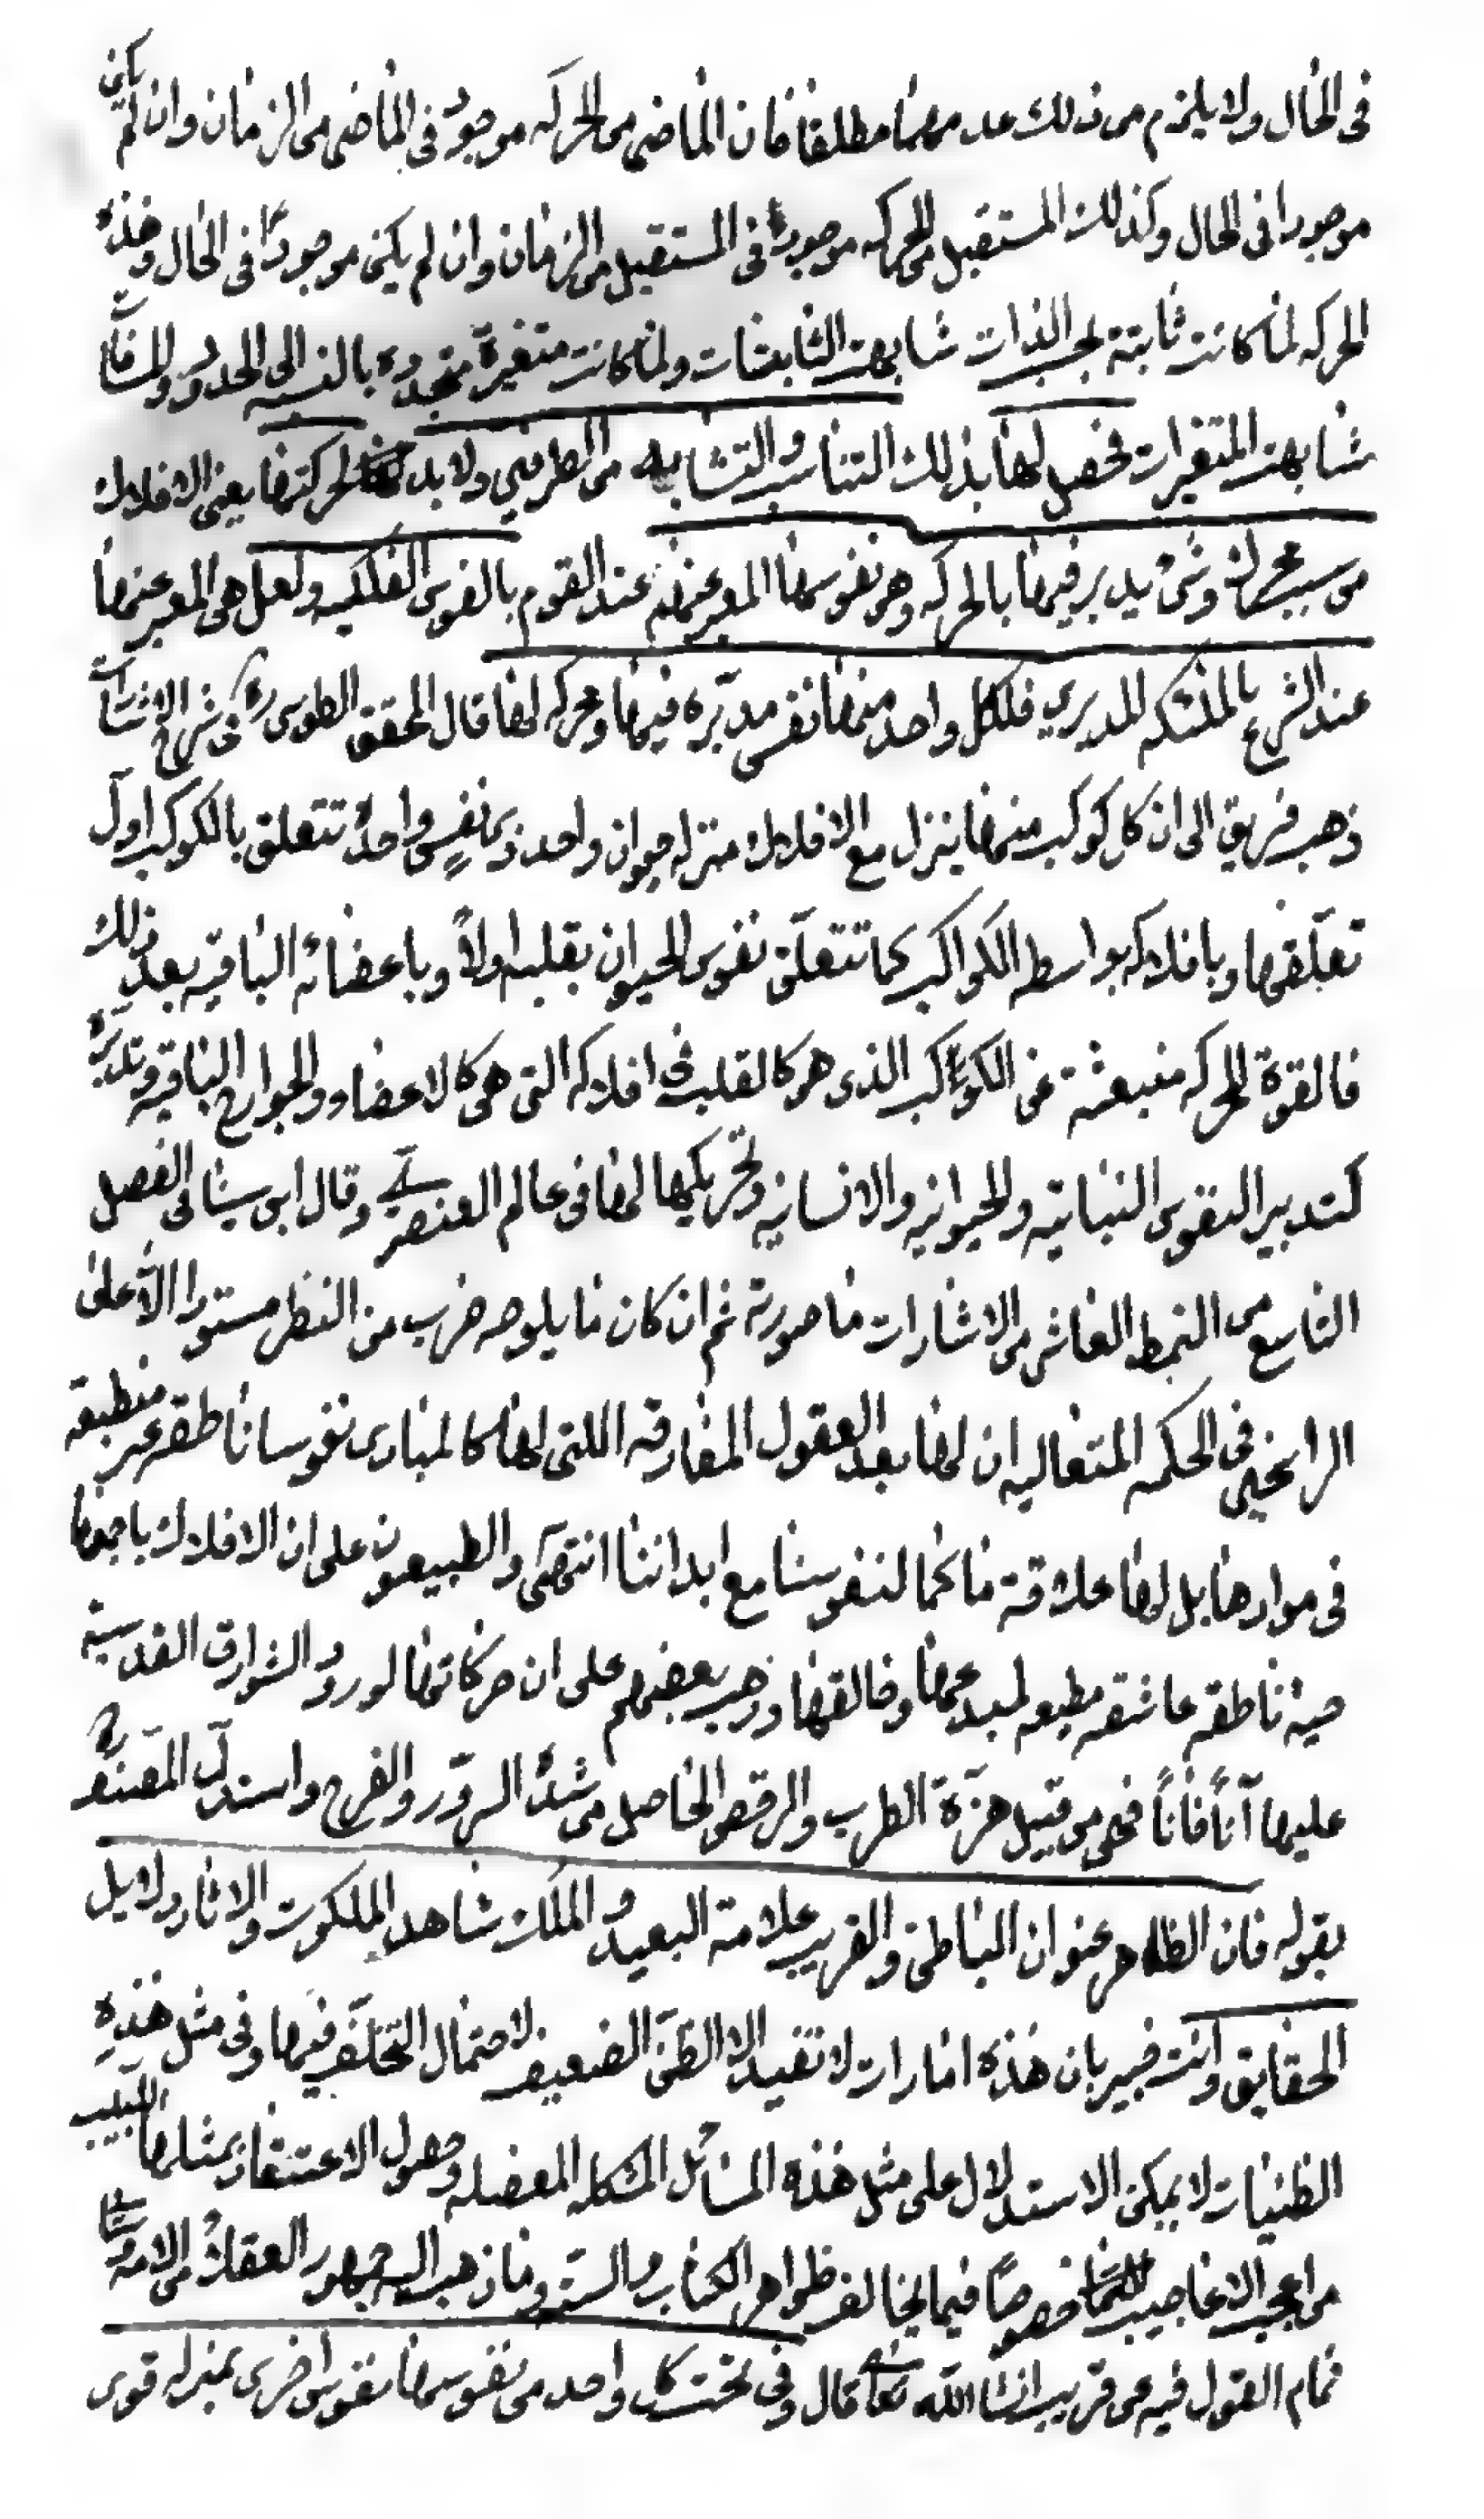 في الحال ولا يلزم من ذلك عدمهما مطلقا فان الماضي من الحركه موجود في الماضي من الزمان وان لم يكن
موجودا في الحال وكذلك المستقبل من الحركه موجودة في المستقبل من الزمان وان لم يكن موجودًا في الحال وهذه
الحركه لما كانت ثابتة بحسب الذات شابهت الثابتات ولما كانت متغيرة متجدده بالنسبه الى الحدود والمسافات
شابهت المتغيرات فحصل لها بذلك التناسب والتشابه من الطرفين ولا بد لحركتها يعني الافلاك
من سبب محرك وشئ يدبر فيها بالحركه وهو نفوسها المعبر عنها عند القوم بالنفوس الفلكيه ولعل هي المعبر عنها
عند الشرع بالملئكه المدبرين فلكل واحد منها نفس مدبّره فيها ومحركه لها قال المحقق الطوسي ره في شرح الاشارات
ذهب فريق الى ان كل كوكب منها ينزل مع الافلاك منزله حيوان واحد ذي نفسٍ واحدة تتعلق بالكوكب اول
تعلّقها وبافلاكه بواسطه الكواكب كما تتعلّق نفوس الحيوان بقلبه اولاً وباعضائه الباقيه بعد ذلك
فالقوة المحركه منبعثة عن الكواكب الذي هو كالقلب في افلاكه التي هي كالاعضاء والجوارح الباقيه وتدبيره
كتدبير النفوس النباتيه والحيوانيه والانسانيه وتحريكها لها في عالم العنصر وقال ابن سينا في الفصل
التاسع من النمط العاشر من الاشارات ما صورته ثم ان كان ما يلوحه ضرب من النظر مستورا الا على
الراسخين في الحكمه المتعاليه ان لها بعد العقول المفارقه اللتي لها كالمبادى نفوسا ناطقه غير منطبعة
في موادها بل لها علاقة ما كما لنفوسنا مع ابداننا انتهى والطبيعيون على ان الافلاك باجمعها
حية ناطقه عاشقه مطيعه لمبدعها وخالقها وذهب بعضهم على ان حركاتها لورود الشوارق القدسية
عليها آناً فاناً فهي من قبيل هزّة الطرب والرقص الحاصل من شدّة السرور والفرح واستدل المصنف ره
بقوله فان الظاهر عنوان الباطن والقريب علامة البعيد والملك شاهد الملكوت والاثار دلايل
الحقايق وانت خبير بان هذه امارات لا تفيد الا الظنّ الضعيف لاحتمال التخلّف فيها وفي مثل هذهِ
الظنيات لا يمكن الاستدلال على مثل هذه المسائل المشكله المعضله وحصول الاعتقاد بمثلها للبيب
من اعجب الاعاجيب خصوصًا فيما يخالف ظواهر الكتاب والسنة وما ذهب اليه جمهور العقلاء من الامه وسياتي
تمام القول فيه عن قريب انشاء الله تعالى قال وفي تحت كل واحد من نفوسها نفوس اخرى بمنزله قوى